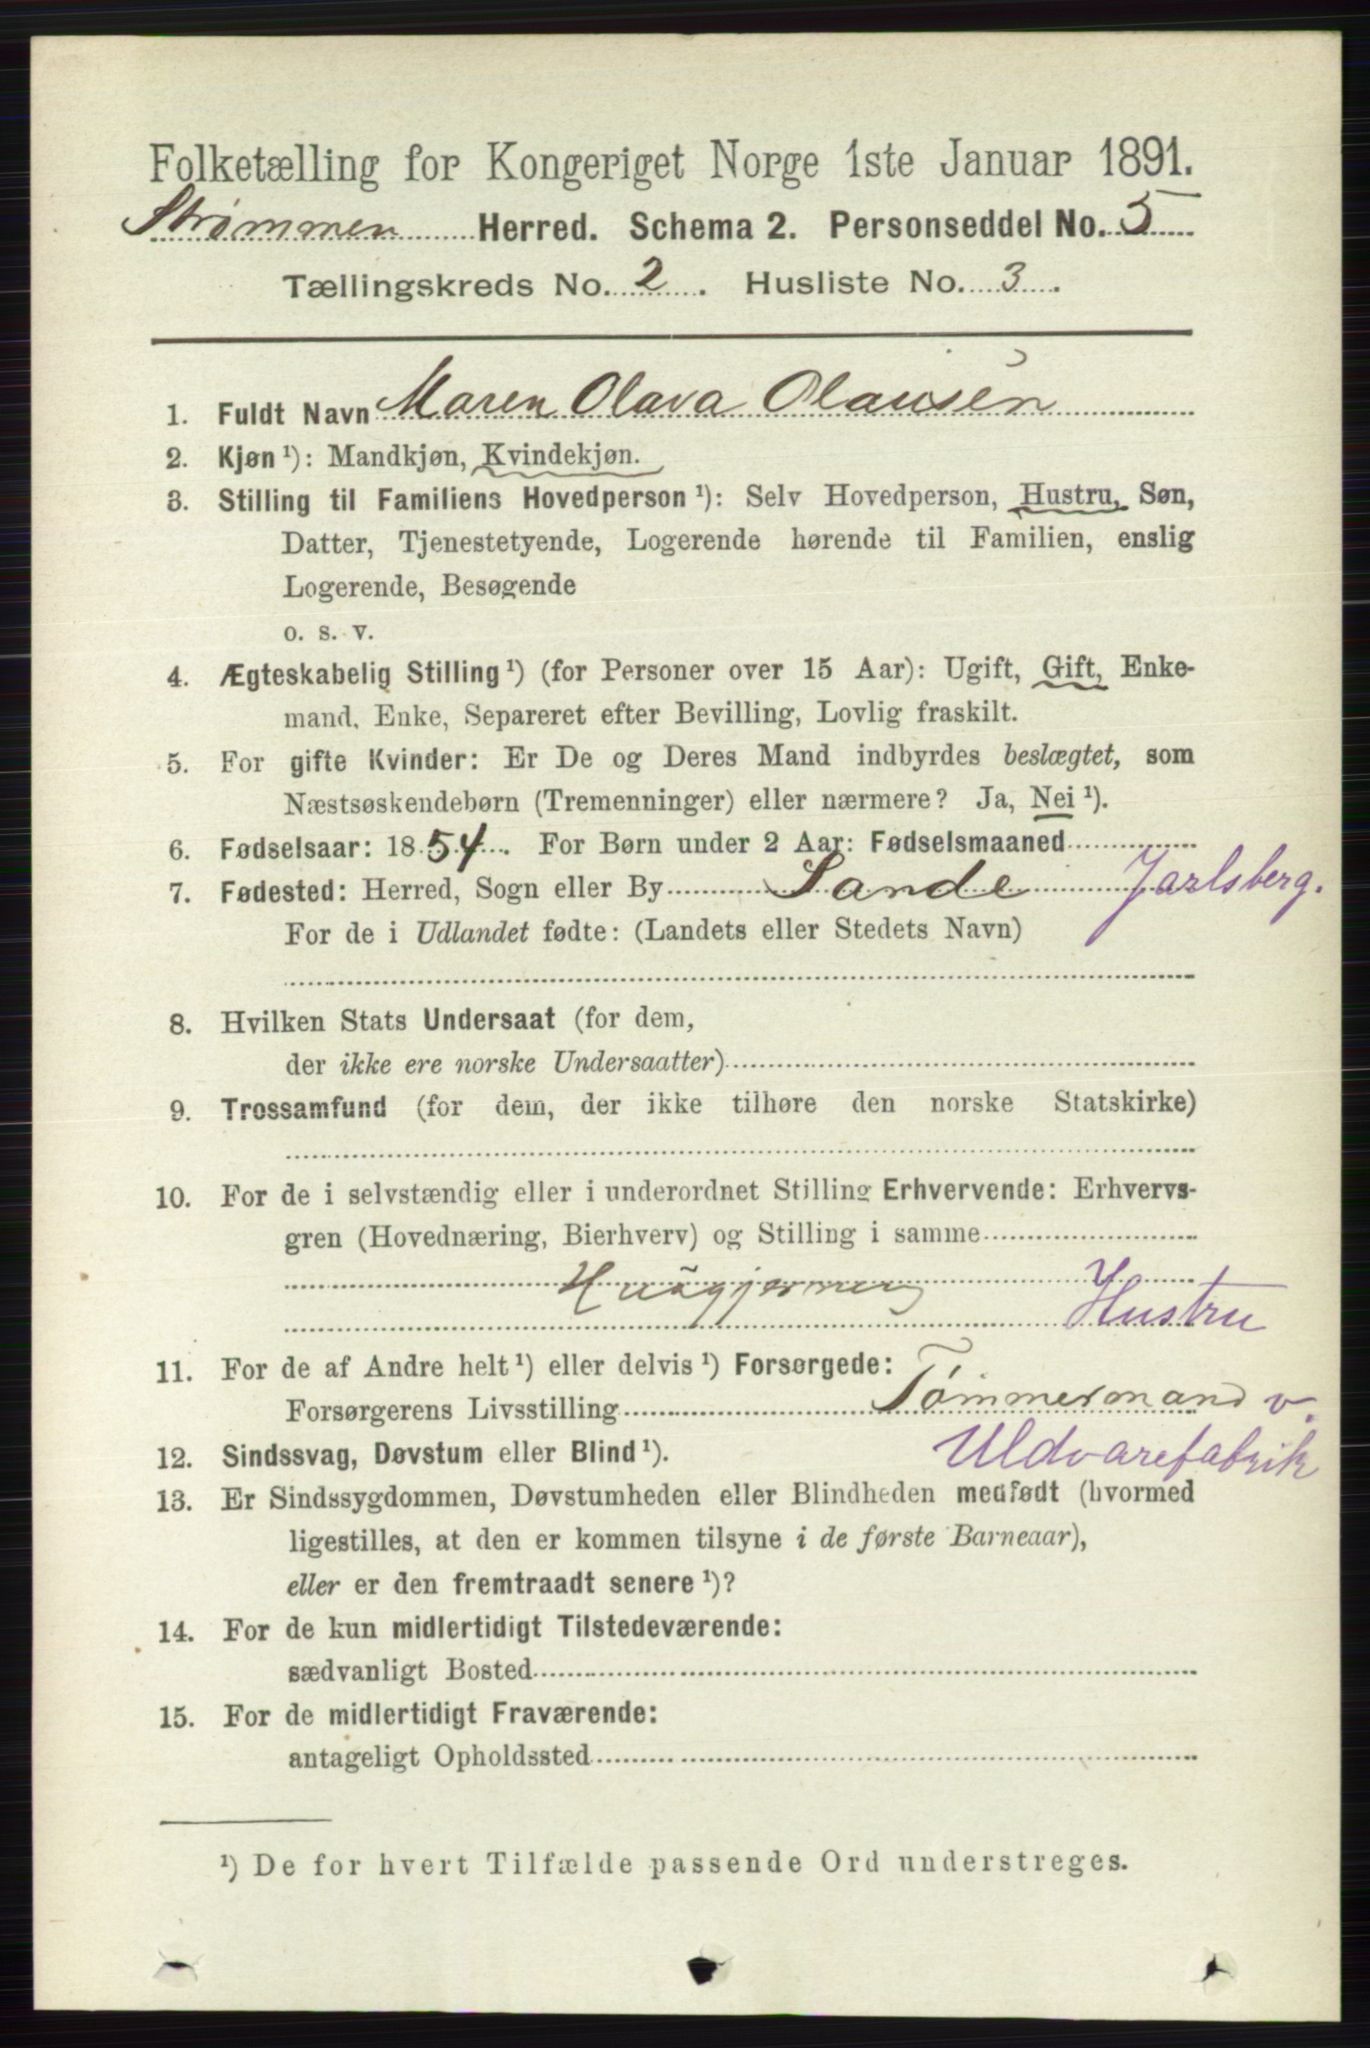 Folketælling for Kongeriget Norge 1ste Januar 1891.
Strømmen Herred. Schema 2. Personseddel No. 5
Tællingskreds No. 2. Husliste No. 3.
1. Fuldt Navn Maren Olava Olausen
2. Kjøn ¹): Mandkjøn, Kvindekjøn.
3. Stilling til Familiens Hovedperson ¹): Selv Hovedperson, Hustru, Søn,
Datter, Tjenestetyende, Logerende hørende til Familien, enslig
Logerende, Besøgende
o. s. v.
4. Ægteskabelig Stilling ¹) (for Personer over 15 Aar): Ugift, Gift, Enke-
mand, Enke, Separeret efter Bevilling, Lovlig fraskilt.
5. For gifte Kvinder: Er De og Deres Mand indbyrdes beslægtet, som
Næstsøskendebørn (Tremenninger) eller nærmere? Ja, Nei ¹).
6. Fødselsaar: 1854. For Børn under 2 Aar: Fødselsmaaned
7. Fødested: Herred, Sogn eller By Sande Jarlsberg.
For de i Udlandet fødte: (Landets eller Stedets Navn)
8. Hvilken Stats Undersaat (for dem,
der ikke ere norske Undersaatter)
9. Trossamfund (for dem, der ikke tilhøre den norske Statskirke)
10. For de i selvstændig eller i underordnet Stilling Erhvervende: Erhvervs-
gren (Hovednæring, Bierhverv) og Stilling i samme
Husgjerning Hustru
11. For de af Andre helt ¹) eller delvis ¹) Forsørgede:
Forsørgerens Livsstilling Tømmermand v.
Uldvarefabrik
12. Sindssvag, Døvstum eller Blind ¹).
13. Er Sindssygdommen, Døvstumheden eller Blindheden medfødt (hvormed
ligestilles, at den er kommen tilsyne i de første Barneaar),
eller er den fremtraadt senere ¹)?
14. For de kun midlertidigt Tilstedeværende:
sædvanligt Bosted
15. For de midlertidigt Fraværende:
antageligt Opholdssted
¹) De for hvert Tilfælde passende Ord understreges.